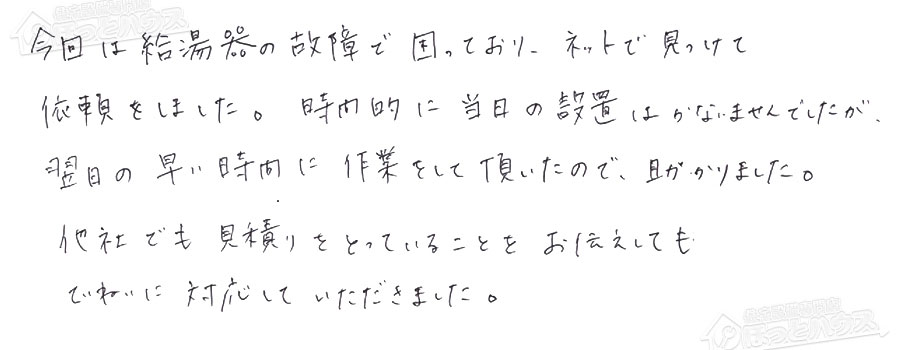 今回は給湯器の故障で困っており、ネットで見つけて
依頼をしました。時間的に当日の設置はかないませんでしたが、
翌日の早い時間に作業をして頂いたので、助かりました。
他社でも見積りをとっていることをお伝えしても
ていねいに対応していただきました。
ほっとハウス